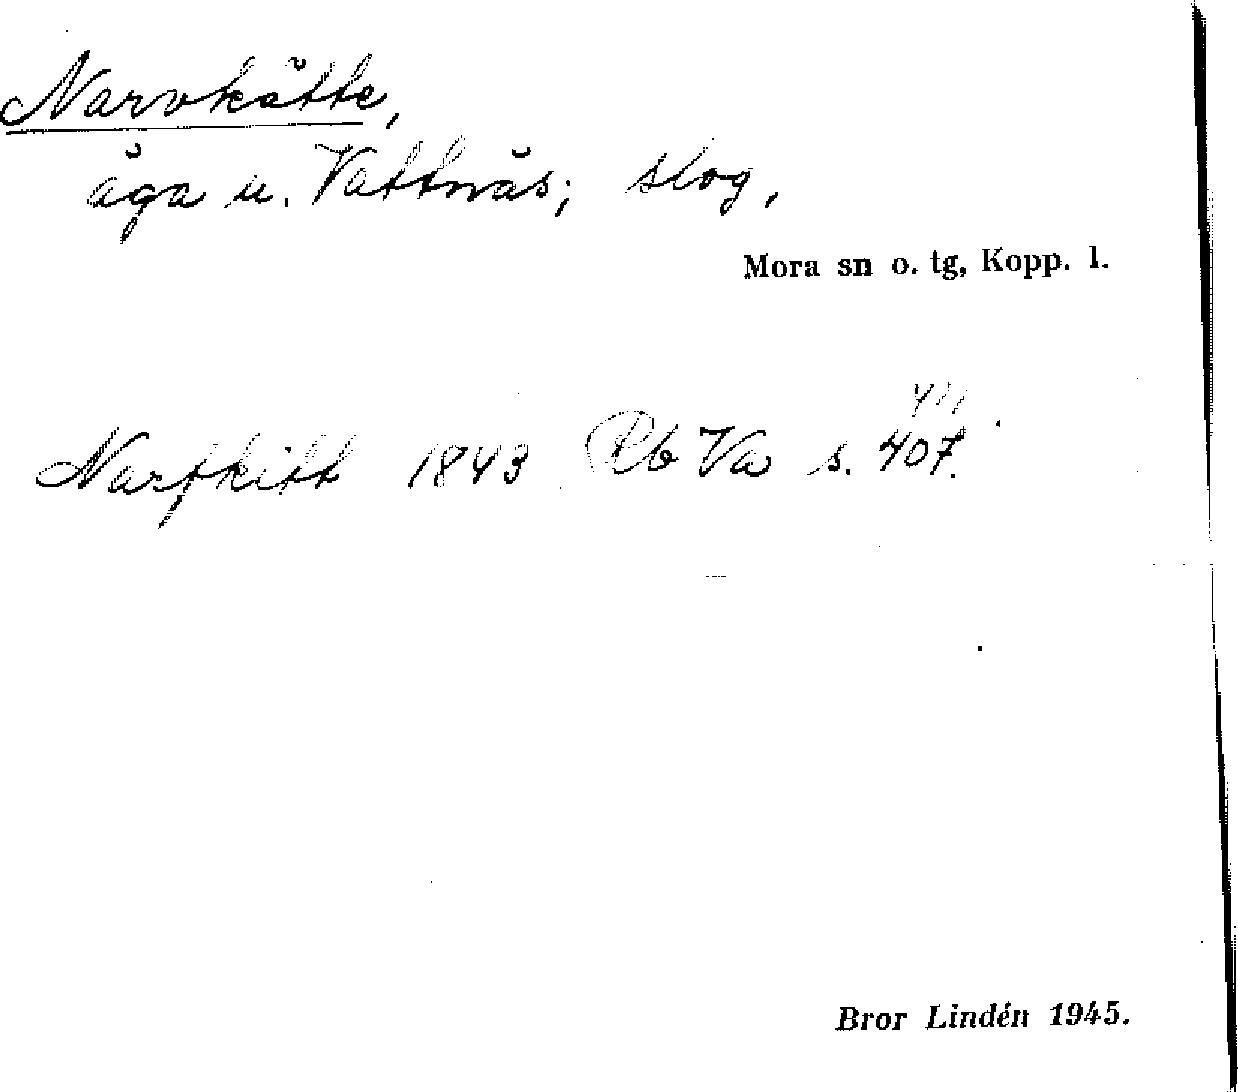 Narvkätte,
äga u. Vattnäs; slog,
Mora sn o. tg, Kopp. l.
411
Narfkitt 1843 Rb Va s. 407.
Bror Lindén 1945.